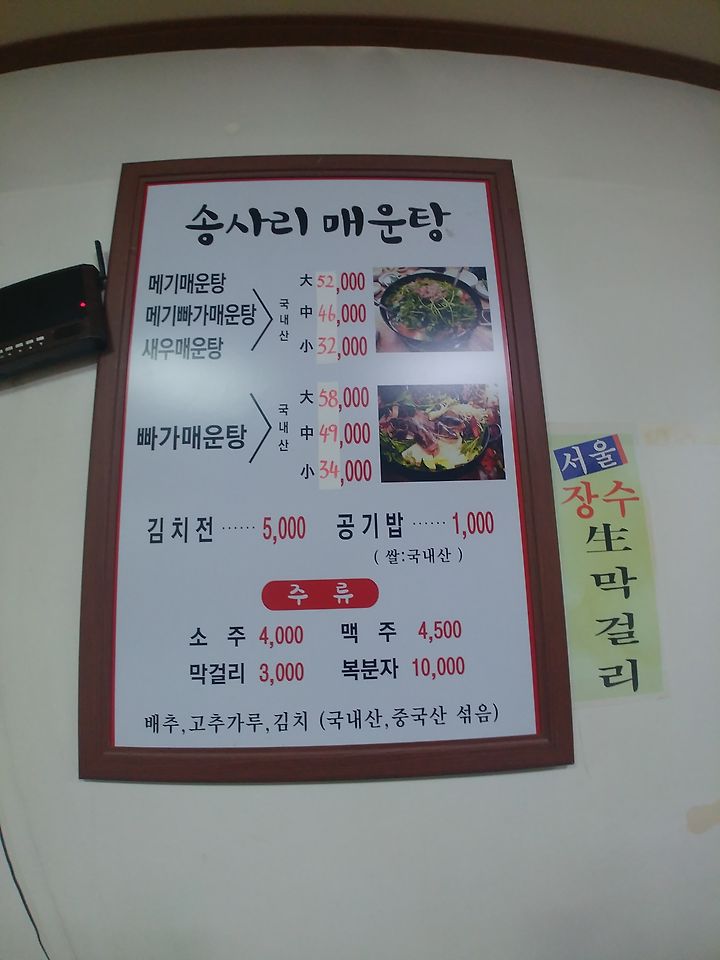 송사리 매운탕
메기매운탕
메기빠가매운탕
새우매운탕
국내산
大 52,000
中 46,000
小 32,000
빠가매운탕
국내산
大 58,000
中 49,000
小 34,000
김치전 ······ 5,000 공기밥 ······ 1,000
( 쌀:국내산 )
주 류
소 주 4,000 맥 주 4,500
막걸리 3,000 복분자 10,000
배추,고추가루,김치 (국내산,중국산 섞음)
서울
장수
生
막
걸
리